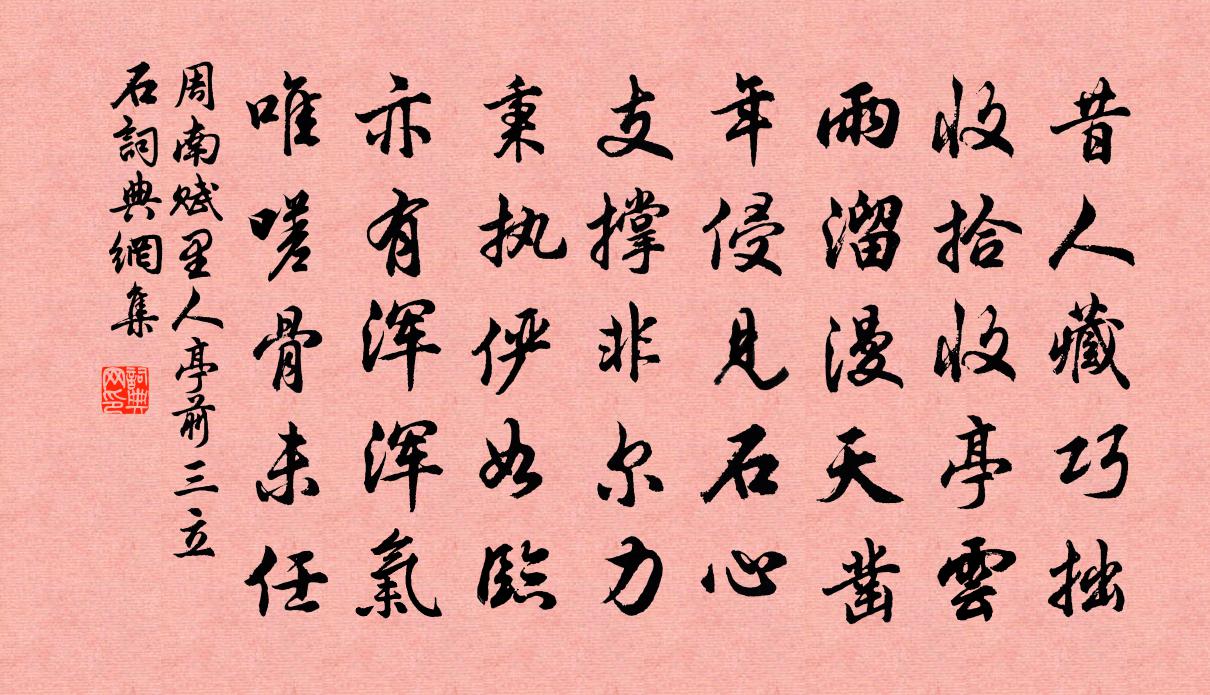 昔人藏巧拙
收拾收亭雲
雨溜漫天凿
年侵見石心
支撑非尔力
秉执俨如臨
亦有浑浑氣
唯嗟骨未任
周南赋里人亭前三立
石詞典網集
詞典网印